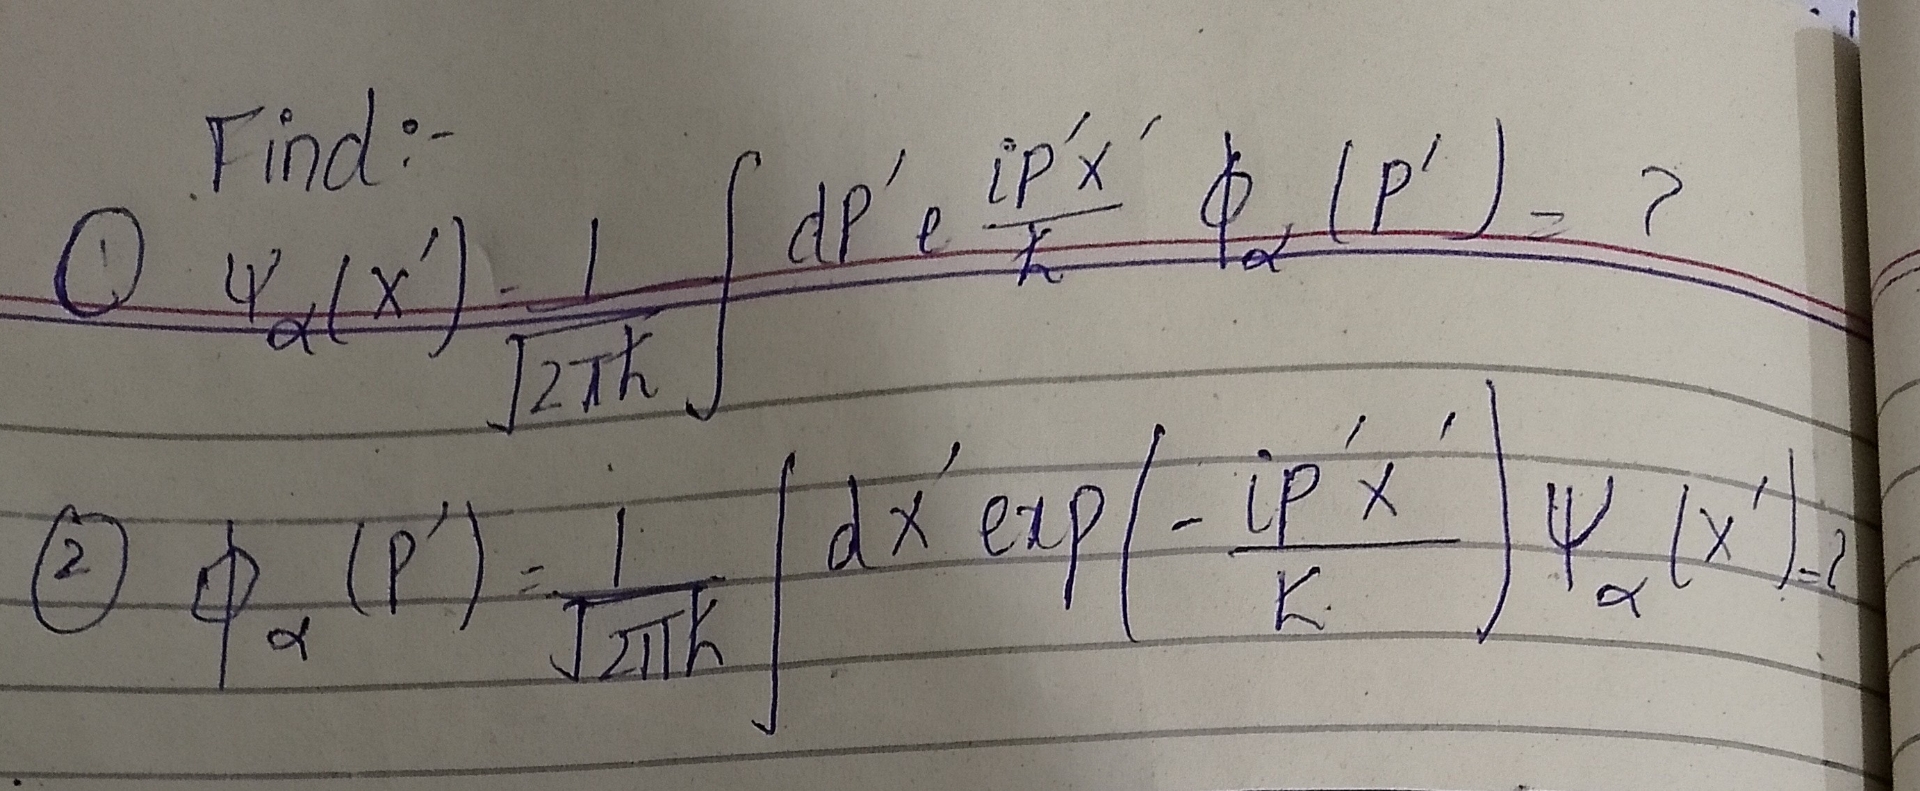 Find:-
① ψ_α(x') = 1/√2πħ ∫ dp' e^(ip'x'/ħ) ϕ_α(p') = ?
② ϕ_α(p') = 1/√2πħ ∫ dx' exp(-ip'x'/ħ) ψ_α(x') = ?